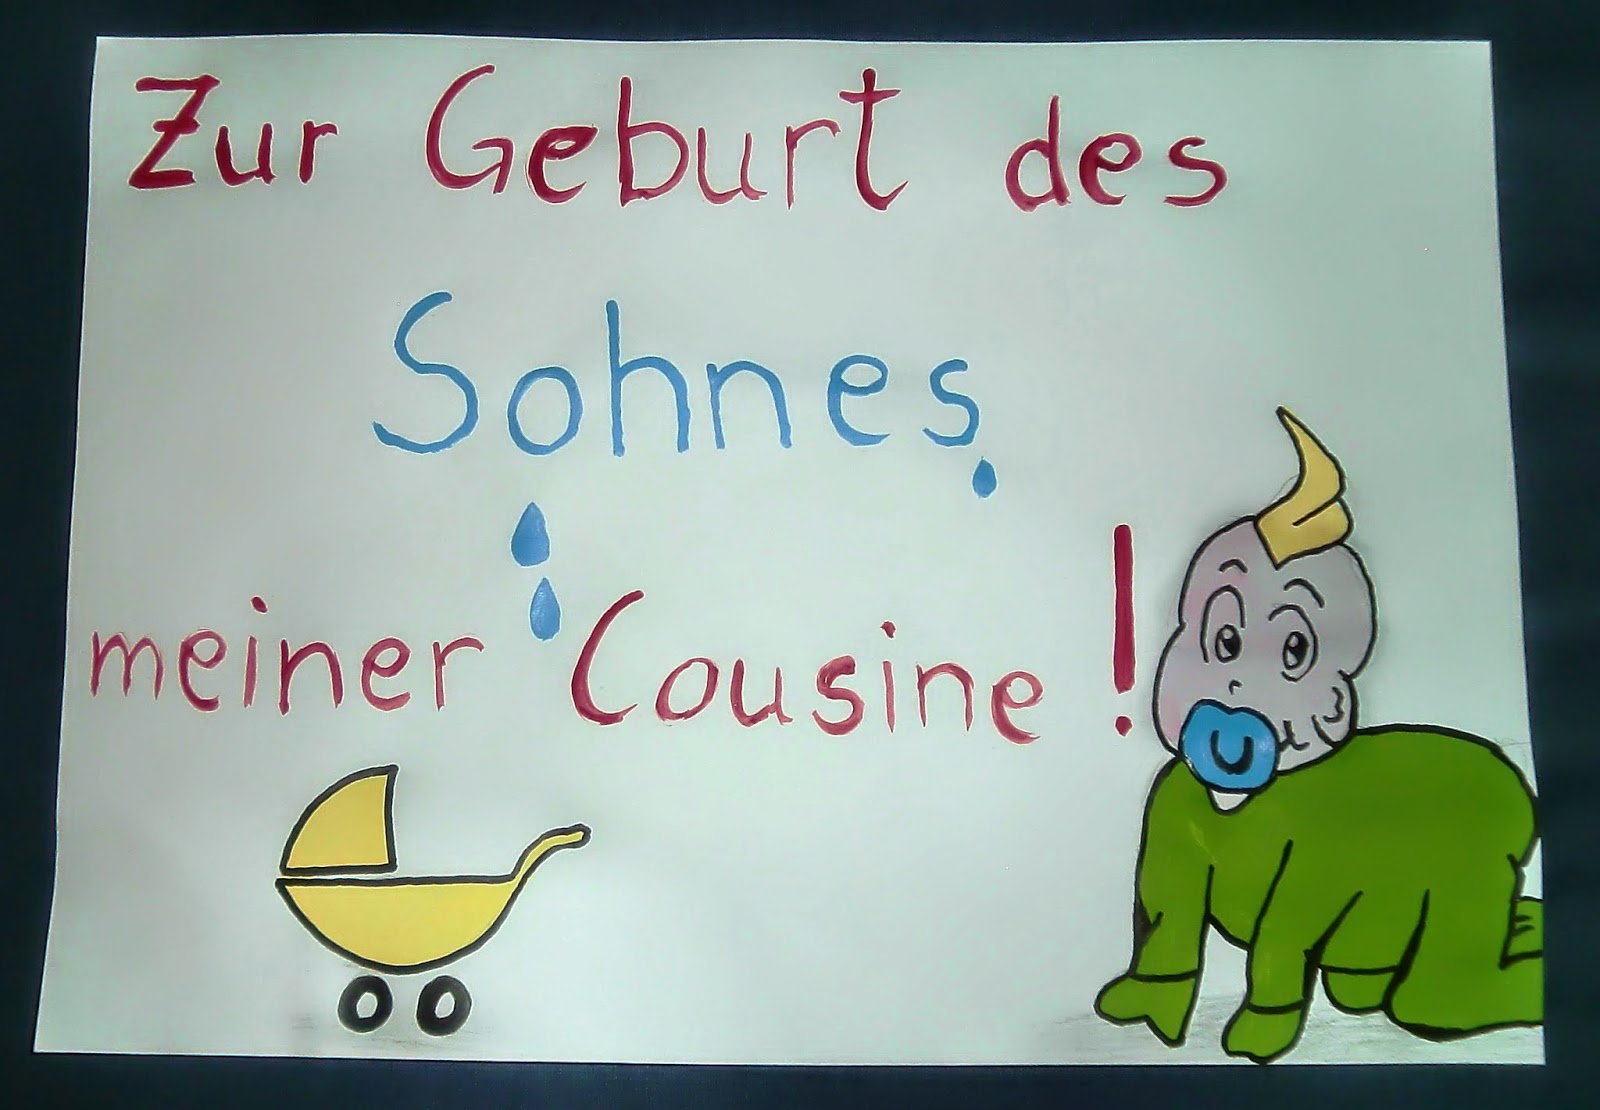 Zur Geburt des
Sohnes
meiner Cousine!